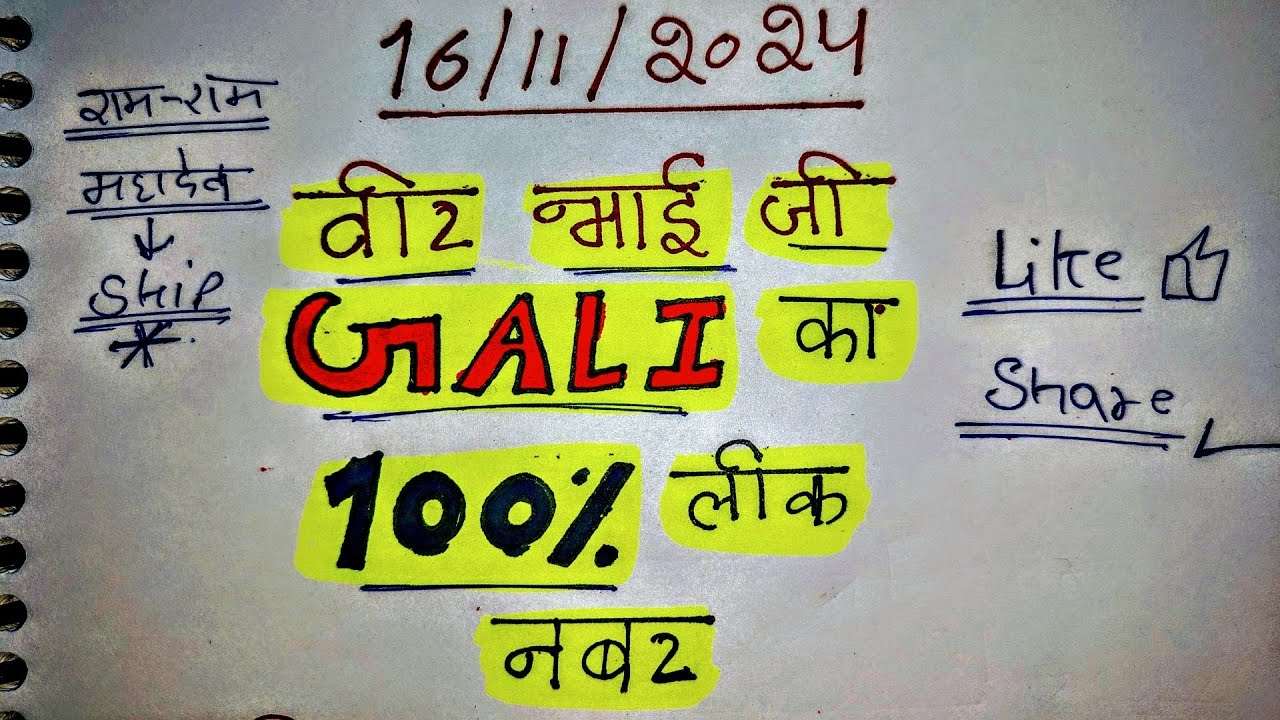 16/11/2024
राम-राम
महादेव
↓
Ship
*
वीर भाई जी
GALI का
100% लीक
नबर
Like
Share